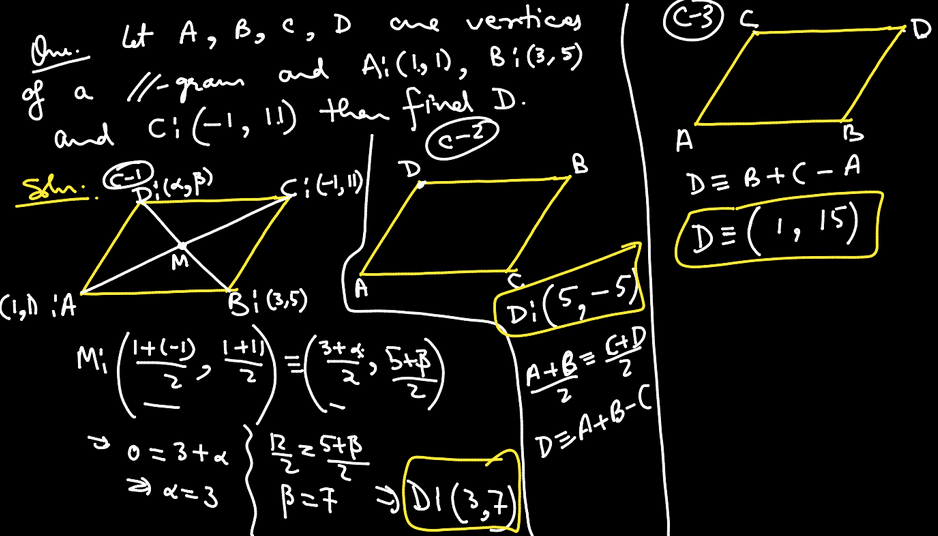 Que. Let A, B, C, D are vertices
of a //-gram and A:(1,1), B:(3,5)
and C:(-1, 11) then find D.
Soln.
C-1
D:(α,β)
C:(-1,11)
M
(1,1) :A
B:(3,5)
M: ((1+(-1))/2, (1+11)/2) ≡ ((3+α)/2, (5+β)/2)
⇒ 0 = 3+α
⇒ α=3
12/2 = (5+β)/2
β=7 ⇒ D:(3,7)
C-2
D
B
A
C
D:(5,-5)
(A+B)/2 ≡ (C+D)/2
D≡A+B-C
C-3
C
D
A
B
D ≡ B+C-A
D≡ (1, 15)